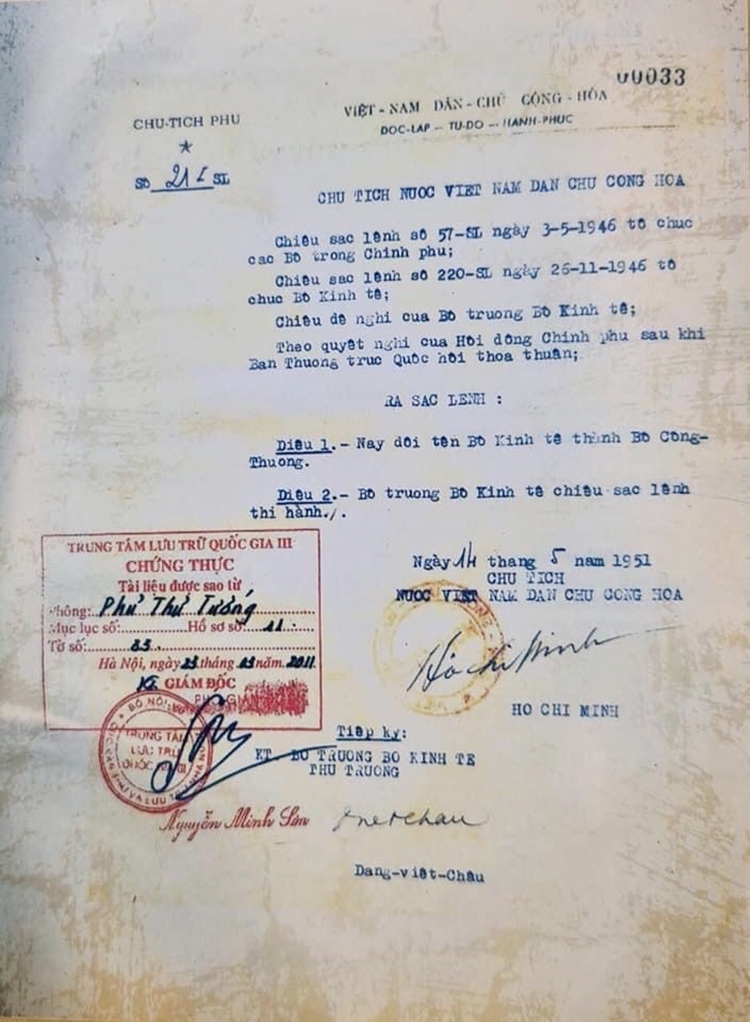 00033
CHU-TICH PHU
VIỆT - NAM DÂN - CHỦ CỘNG - HÒA
DOC-LAP -- TU-DO -- HANH-PHUC
Số 21 I SL
CHU TICH NUOC VIET NAM DAN CHU CONG HOA
Chiêu sac lệnh sô 57-SL ngày 3-5-1946 tô chuc
cac Bô trong Chinh phu;
Chiêu sac lệnh sô 220-SL ngày 26-11-1946 tô
chuc Bô Kinh tê;
Chiêu dê nghi cua Bô truong Bô Kinh tê;
Theo quyêt nghi cua Hôi dông Chinh phu sau khi
Ban Thuong truc Quôc hôi thoa thuân;
RA SAC LENH :
Diêu 1.- Nay dôi tên Bô Kinh tê thành Bô Công-
Thuong.
Diêu 2.- Bô truong Bô Kinh tê chiêu sac lênh
thi hành./.
Ngày 14 thang 5 nam 1951
CHU TICH
NUOC VIET NAM DAN CHU CONG HOA
Hồ Chí Minh
HO CHI MINH
TRUNG TÂM LƯU TRỮ QUỐC GIA III
CHỨNG THỰC
Tài liệu được sao từ
Phông: Phủ Thủ Tướng
Mục lục số: Hồ sơ số: 11
Tờ số: 33
Hà Nội, ngày 23 tháng 03 năm 2011
KT. GIÁM ĐỐC
BỘ NỘI VỤ
TRUNG TÂM
LƯU TRỮ
QUỐC GIA III
Nguyễn Minh Sơn
Tiêp ky:
KT. BO TRUONG BO KINH TE
THU TRUONG
Dang-viêt-Châu